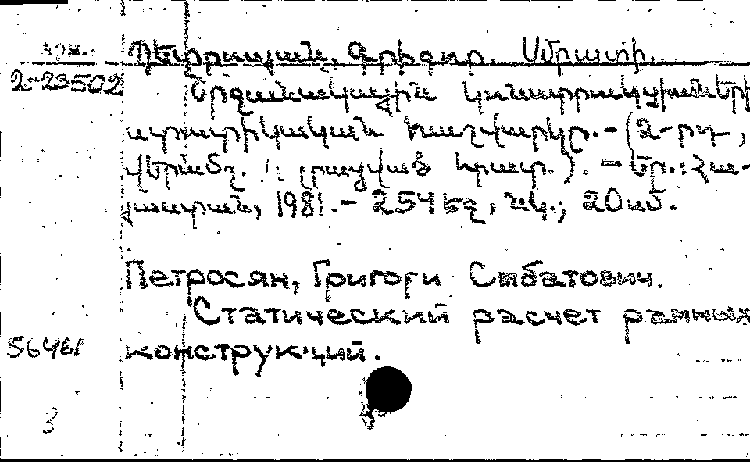 Պետրոսյան, Գրիգոր. Սմբատի.
2-23502 Շրջանակային կոնստրուկցիաների
ստատիկական հաշվարկը. - (2-րդ,
վերամշ. և լրացված հրատ.). - Եր.: Հա-
յաստան, 1981. - 254 էջ, նկ.; 20սմ.
Петросян, Григори Смбатович.
Статический расчет рамных
5646 конструкций.
3